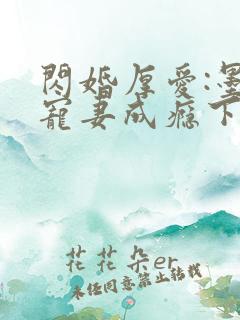 閃婚厚愛:墨
寵妻成癮下
花花朵er
未经同意禁止转载